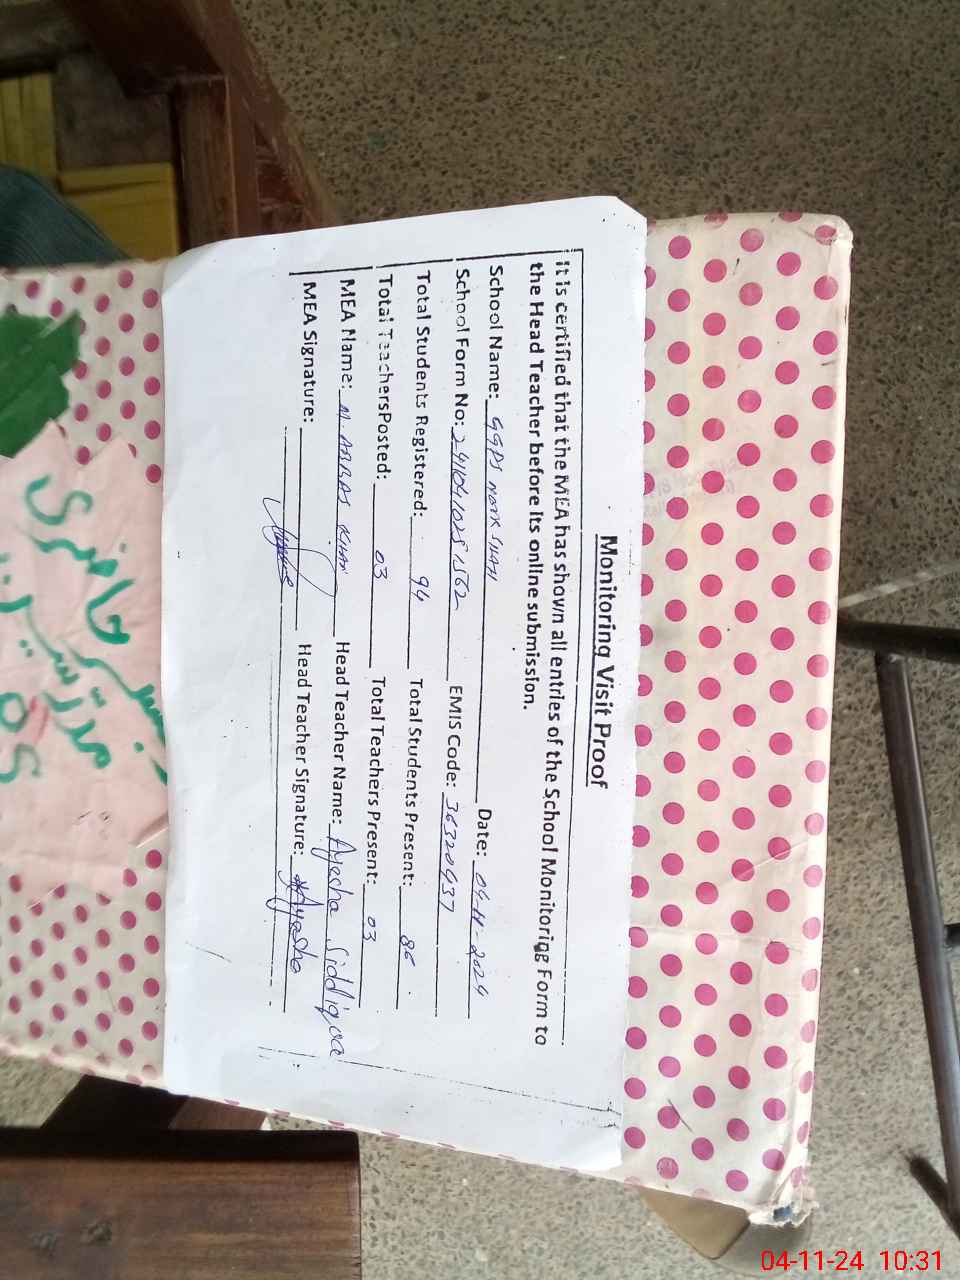 Monitoring Visit Proof
It is certified that the MEA has shown all entries of the School Monitoring Form to
the Head Teacher before its online submission.
School Name: GGPS NOOR SHAH Date: 04-11-2024
School Form No: EMIS Code: 36320437
Total Students Registered: 94 Total Students Present: 86
Total Teachers Posted: 03 Total Teachers Present: 03
MEA Name: M. ABBAS KHAN Head Teacher Name: Ayesha Siddiqaa
MEA Signature: Head Teacher Signature: Ayesha
حاضری
مدرسین
04-11-24 10:31